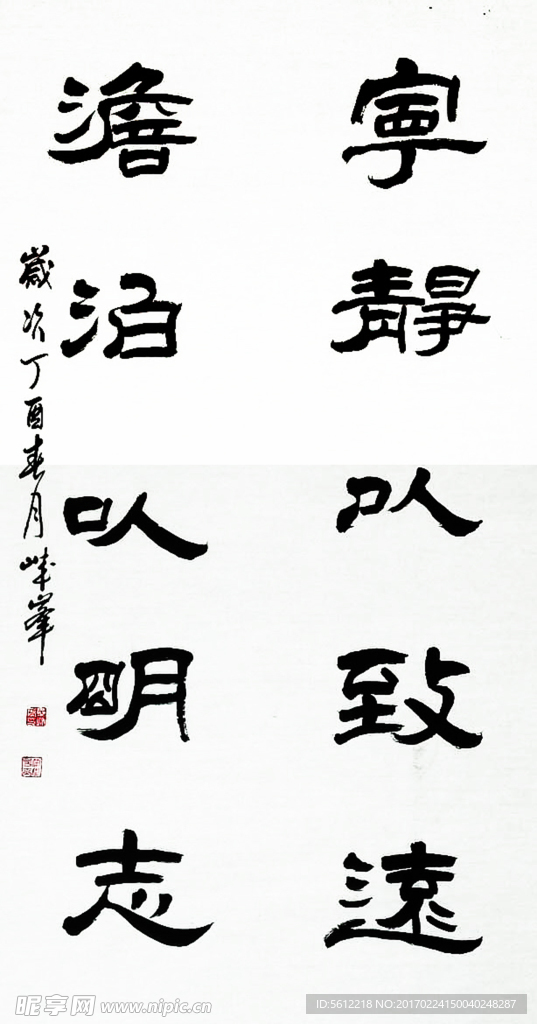 寧靜以致遠
澹泊以明志
歲次丁酉春月峰
昵享网 www.nipic.cn
ID:5612218 NO:20170224150040248287